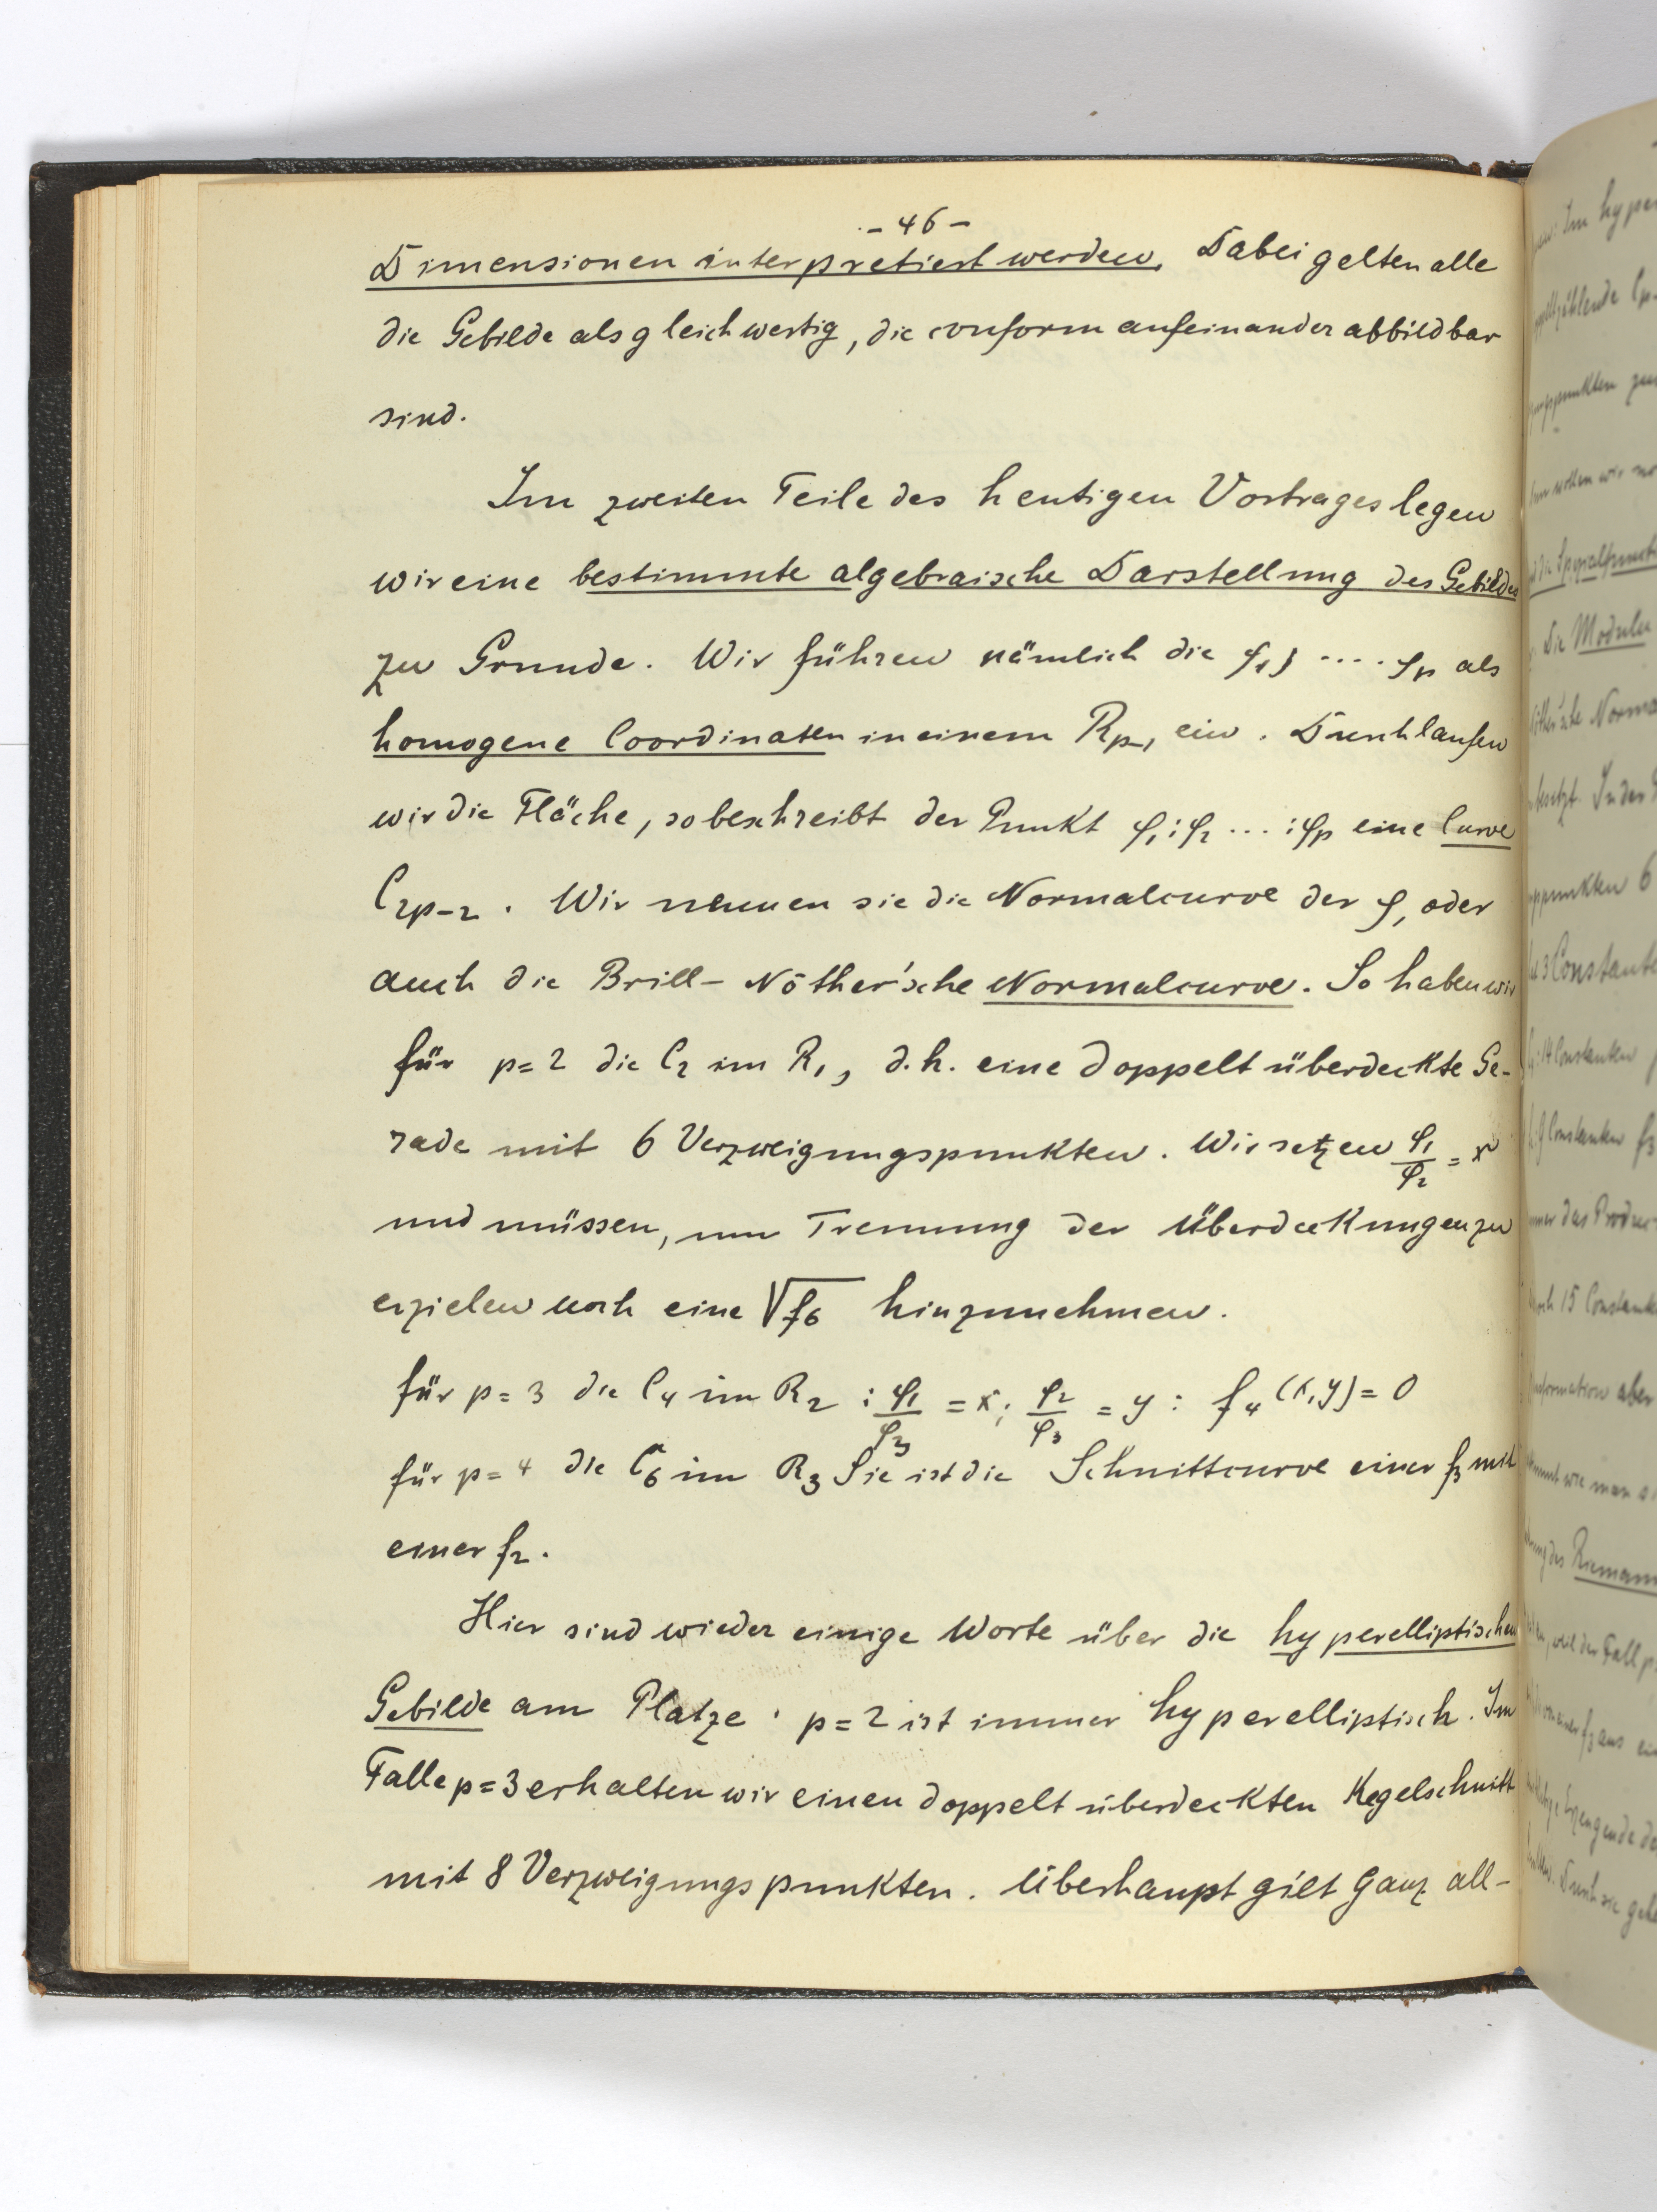 - 46 -
Dimensionen interpretiert werden. Dabei gelten alle
die Gebilde als gleichwertig, die conform aufeinander abbildbar
sind.
Im zweiten Teile des heutigen Vortrages legen
wir eine bestimmte algebraische Darstellung des Gebildes
zu Grunde. Wir führen nämlich die φ₁, .... φₚ als
homogene Coordinaten in einem Rₚ₋₁ ein. Durchlaufen
wir die Fläche, so beschreibt der Punkt φ₁:φ₂ ... :φₚ eine Curve
C₂ₚ₋₂. Wir nennen sie die Normalcurve der φ, oder
auch die Brill-Nöther'sche Normalcurve. So haben wir
für p=2 die C₂ im R₁, d.h. eine doppelt überdeckte Ge-
rade mit 6 Verzweigungspunkten. Wir setzen φ₁/φ₂ = x
und müssen, um Trennung der Überdeckungen zu
erzielen noch eine √f₆ hinzunehmen.
für p=3 die C₄ im R₂ : φ₁/φ₃ = x; φ₂/φ₃ = y : f₄(x,y)=0
für p=4 die C₆ im R₃ Sie ist die Schnittcurve einer f₃ mit
einer f₂.
Hier sind wieder einige Worte über die hyperelliptischen
Gebilde am Platze. p=2 ist immer hyperelliptisch. Im
Falle p=3 erhalten wir einen doppelt überdeckten Kegelschnitt
mit 8 Verzweigungspunkten. Überhaupt gilt ganz all-